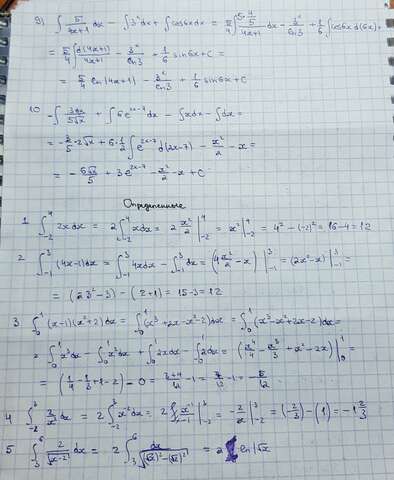 9) ∫ 5/(4x+1) dx - ∫3^x dx + ∫cos6x dx = 5/4 ∫ /(4x+1) dx - 3^x/ln3 + 1/6 ∫cos6x d(6x) =
= 5/4 ∫ d(4x+1)/(4x+1) - 3^x/ln3 + 1/6 sin6x + C =
= 5/4 ln(4x+1) - 3^x/ln3 + 1/6 sin6x + C
10 -∫ 3dx/(5√x) + ∫6e^(2x-7) dx - ∫xdx - ∫dx =
= -3/5·2√x + 6·1/2 ∫e^(2x-7) d(2x-7) - x²/2 - x =
= -6√x/5 + 3e^(2x-7) - x²/2 - x + C
Определенные
1 ∫_-2^4 2xdx = 2∫_-2^4 xdx = 2 x²/2 |_-2^4 = x² |_-2^4 = 4² - (-2)² = 16-4 = 12
2 ∫_-1^3 (4x-1)dx = ∫_-1^3 4xdx - ∫_-1^3 dx = (4x²/2 - x) |_-1^3 = (2x²-x) |_-1^3 =
= (2·3²-3) - (2+1) = 15-3 = 12
3 ∫_0^1 (x-1)(x²+2)dx = ∫_0^1 (x³+2x-x²-2)dx = ∫_0^1 (x³-x²+2x-2)dx =
= ∫_0^1 x³dx - ∫_0^1 x²dx + ∫_0^1 2xdx - ∫_0^1 2dx = (x⁴/4 - x³/3 + x² - 2x) |_0^1 =
= (1/4 - 1/3 + 1 - 2) - 0 = -1 = -1 =
4 ∫_-2^3 2/x² dx = 2∫_-2^3 x^-2 dx = 2 x^-1/-1 |_-2^3 = -2/x |_-2^3 = (-2/3) - (1) = -1 2/3
5 ∫_3^6 2/√(x-2) dx = 2∫_3^6 dx/√((√x)²-(√2)²) = 2 ln|√x